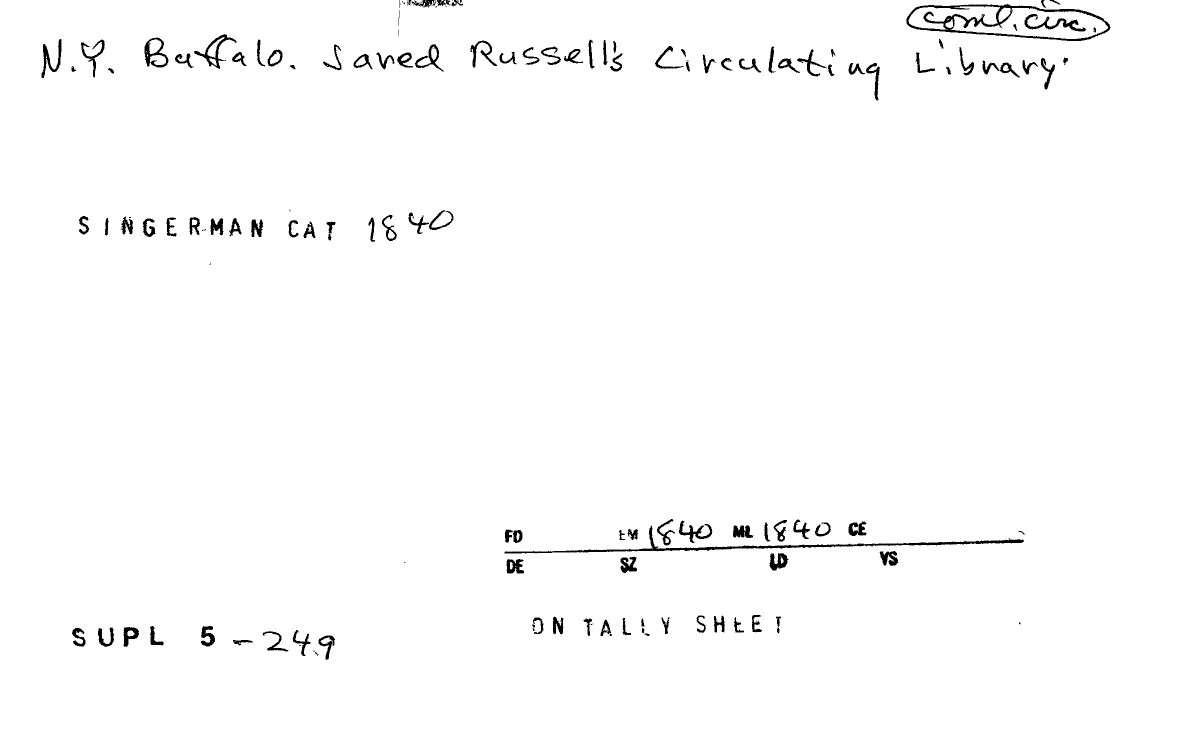 coml. circ.
N.Y. Buffalo. Jared Russell's Circulating Library.
SINGERMAN CAT 1840
FD EM 1840 ML 1840 CE
DE SZ LD VS
ON TALLY SHEET
SUPL 5 - 249